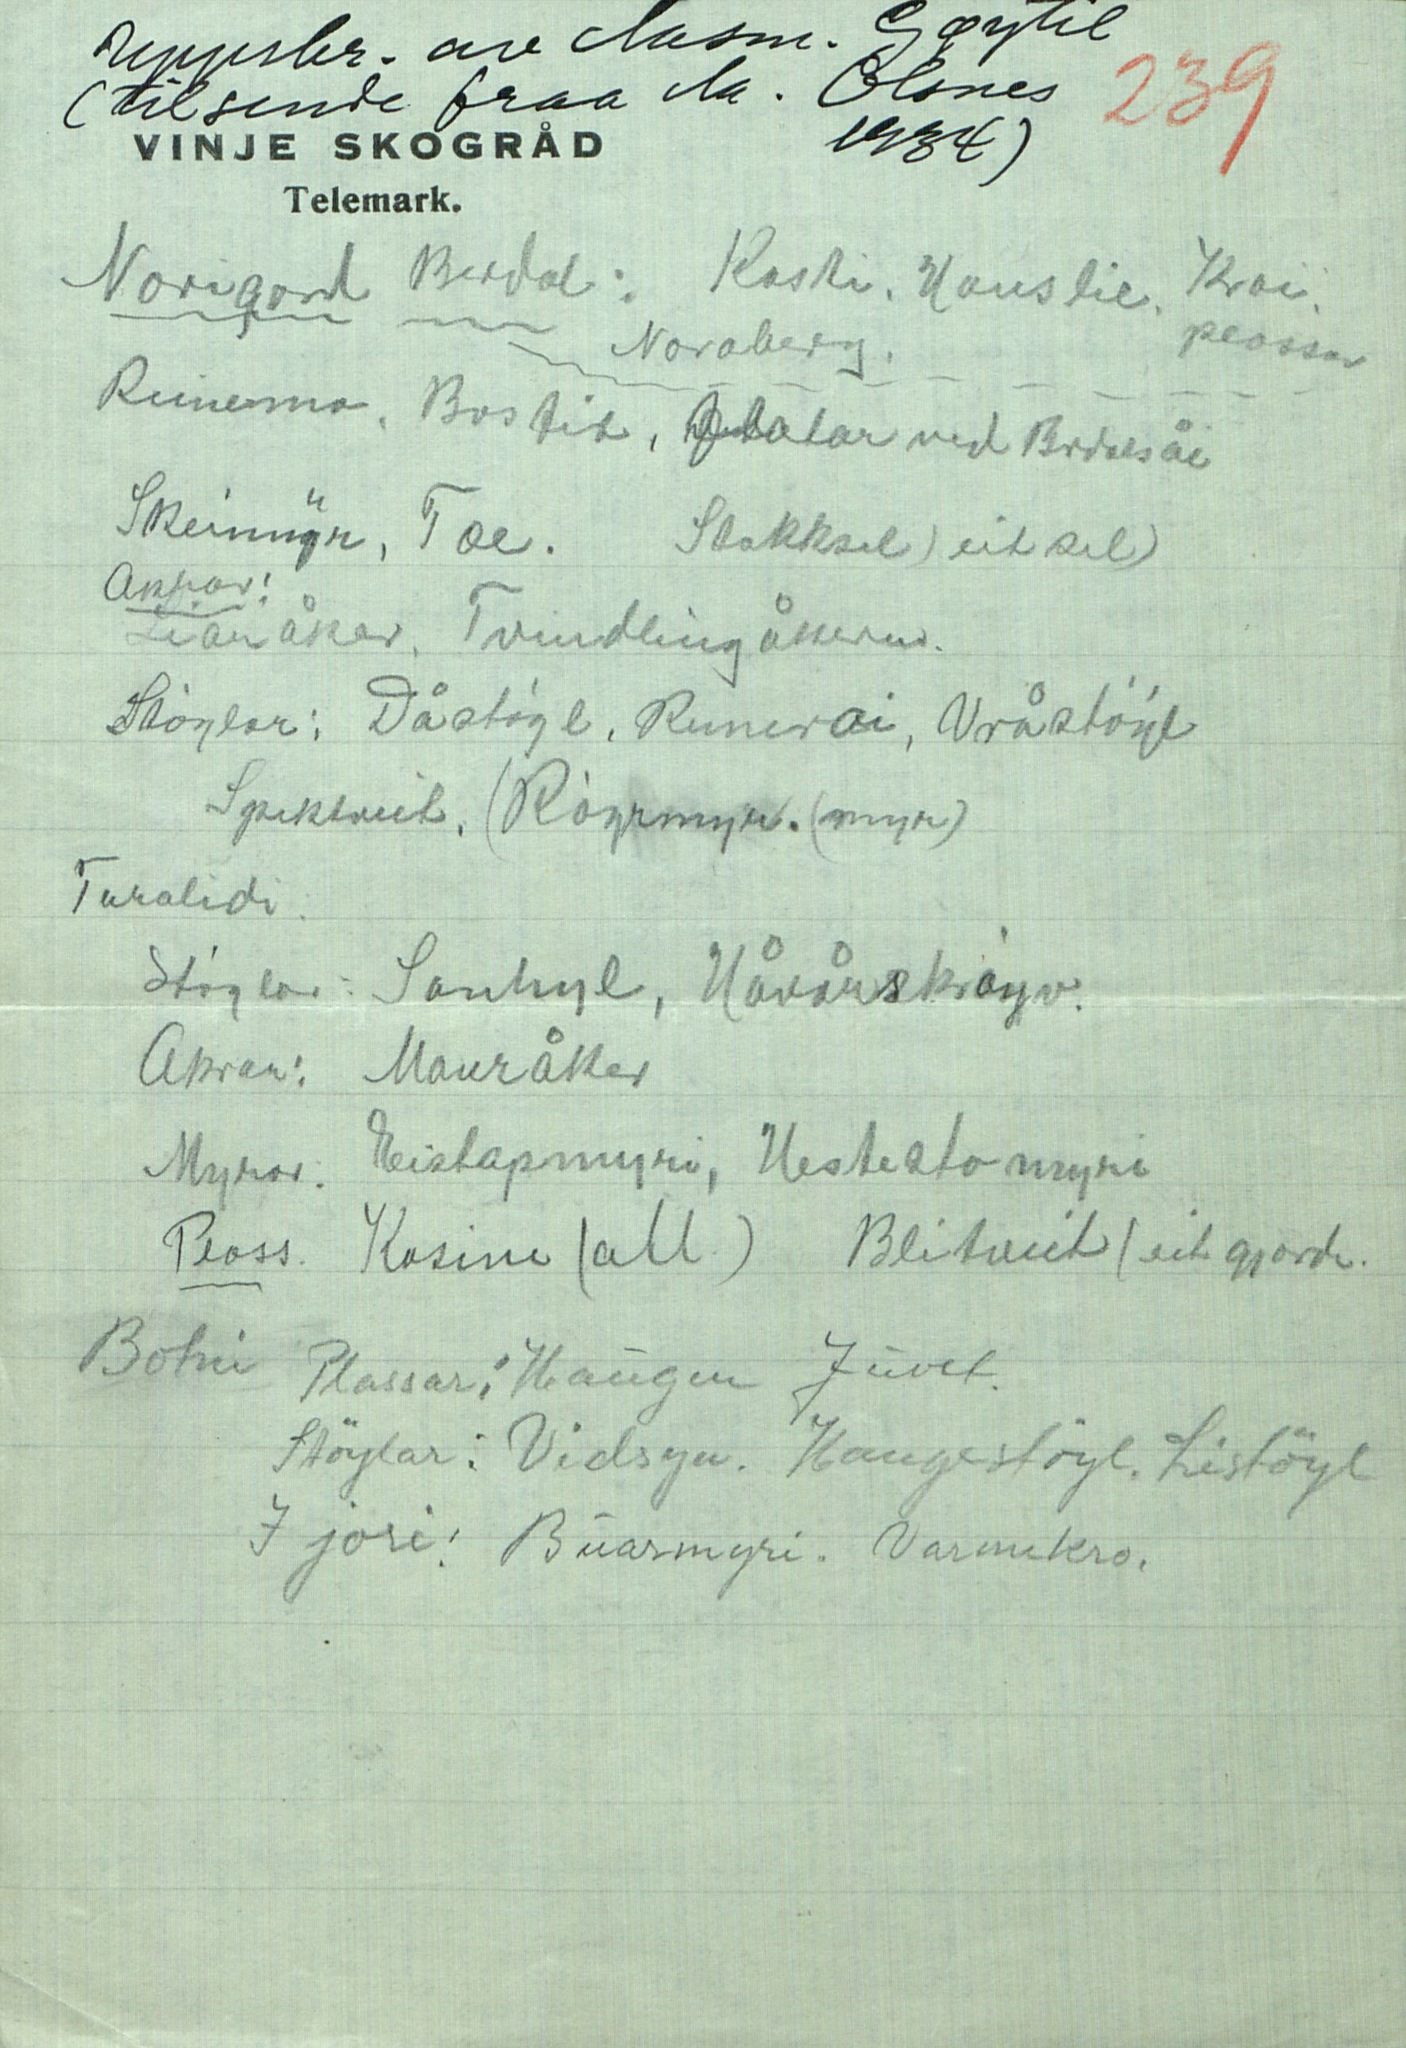 Uppskr. av Aasm. Gøytil
(tilsende fraa A. Olsnes
1934)
239
VINJE SKOGRÅD
Telemark.
Norigard Berdal: Kosti. Hauslie. Kroi.
Noraberg. plassar
Runemo. Bostit, Flatar ved Brdalsåi
Skeinmyr, Toe. Stakksel) eit sel)
Akrar:
Liaråker. Tvindlingåkeren.
Stóylar: Dåstóyl, Runerai, Vråstóyl
Spiktveit. (Róyrmyr. (myr)
Turalidi.
Stóylar: Sanhyl, Håvårskróyv.
Akrar: Mauråker
Myrar. Eistapmyri, Hestestomyri
Plass. Kosine (all) Blitveit (eit gjorde.
Botni Plassar: Haŭgen Jŭvet.
Stöylar: Vidsyn. Haugestöyl. Listöyl
I jori: Bŭarmyri. Varmekro.